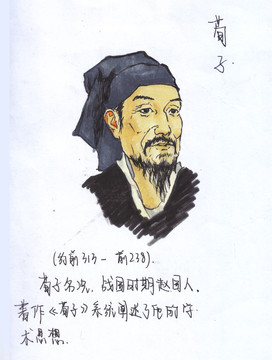 荀子
(约前313-前238).
荀子名况,战国时期赵国人.
著作《荀子》系统阐述了他的学
术思想.